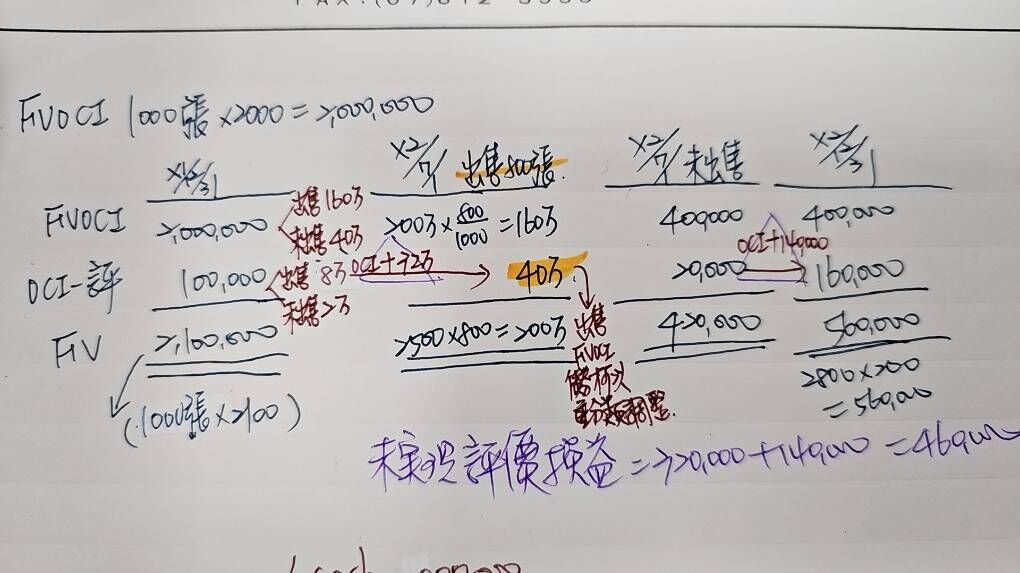 FAX:(07)812-
FVOCI 1000張×2000=2,000,000
X1/12/31 X2/7/1 出售800張. X2/7/1 未出售 X2/12/31
FVOCI 2,000,000 出售160万 200万×800/1000=160万 400,000 400,000
未出售40万 OCI+140,000
OCI-評 100,000 出售8万 OCI+32万 40万 20,000 160,000
未出售2万
FV 2,100,000 2500×800=200万 420,000 560,000
出售
FVOCI
債務
重分類調整.
(1000張×2100)
2800×200
=560,000
未實現評價損益=320,000+140,000=460,000